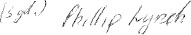 (sgd.) Phillip Lynch